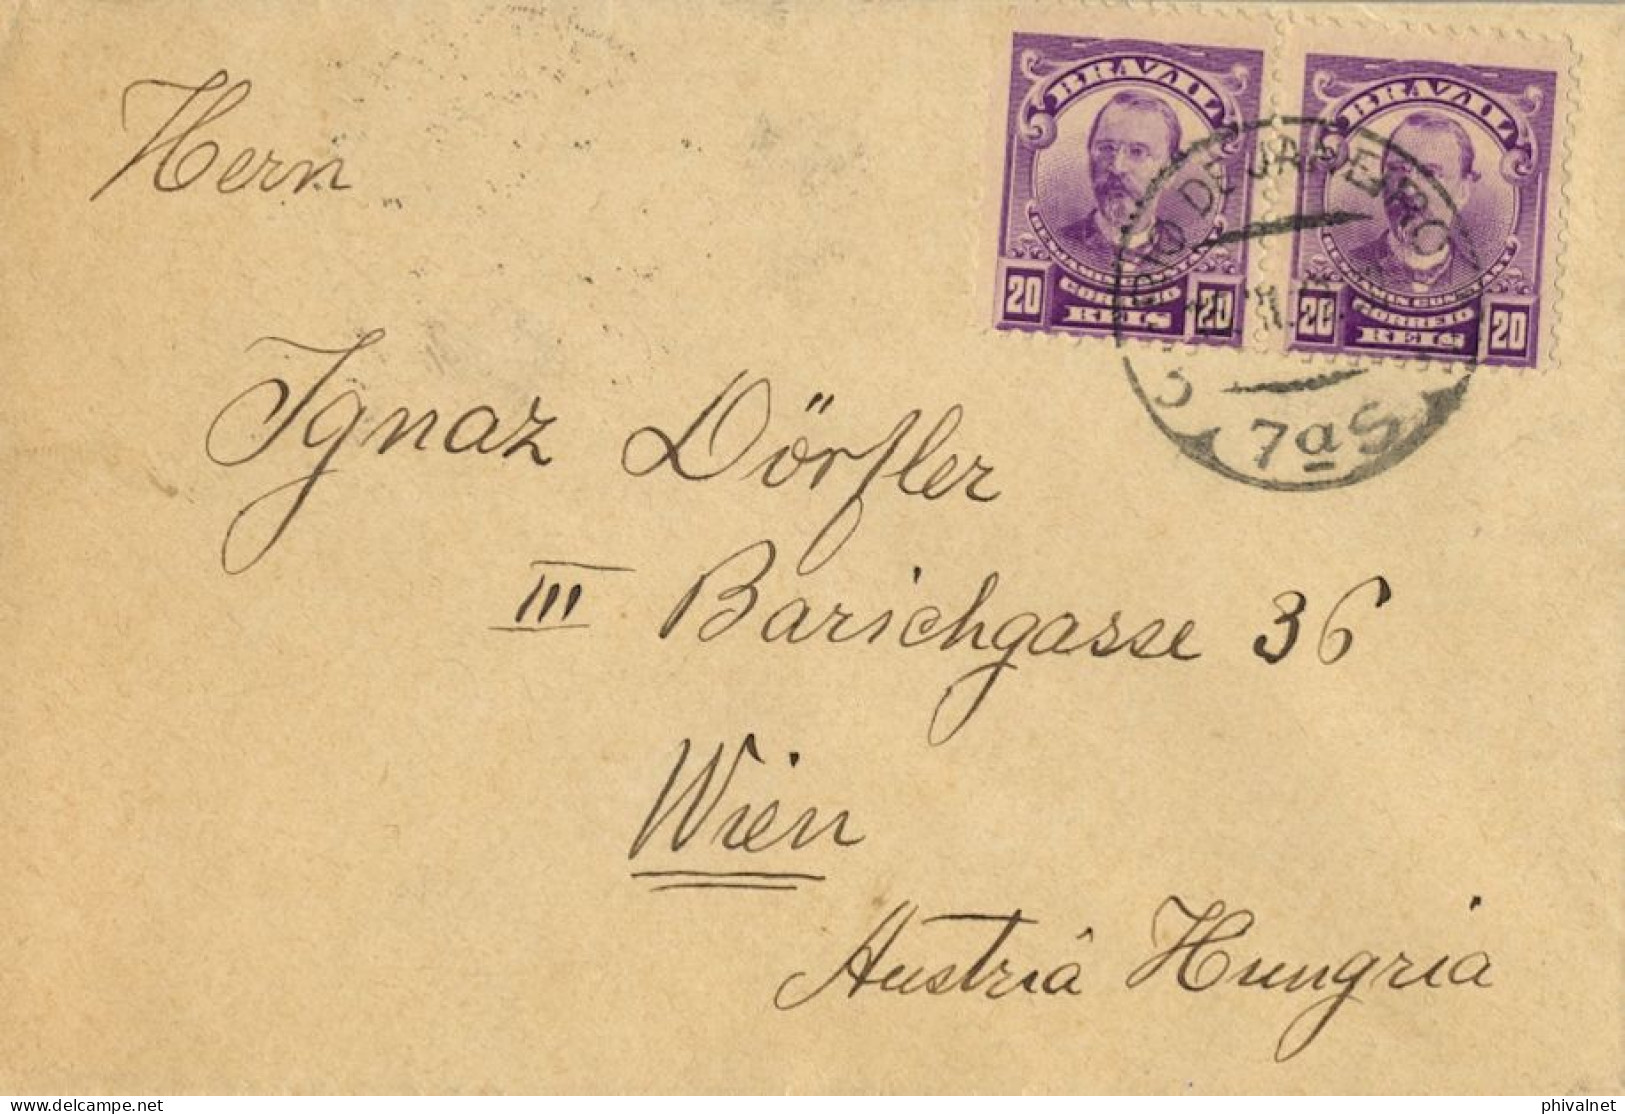 BRAZIL
BENJAMIN CONSTANT
20 CORREIO 20
REIS
BRAZIL
BENJAMIN CONSTANT
20 CORREIO 20
REIS
RIO DE JANEIRO
7a S
Herrn
Ignaz Dörfler
III Barichgasse 36
Wien
Austriâ Hungria
delcampe.net
phivalnet